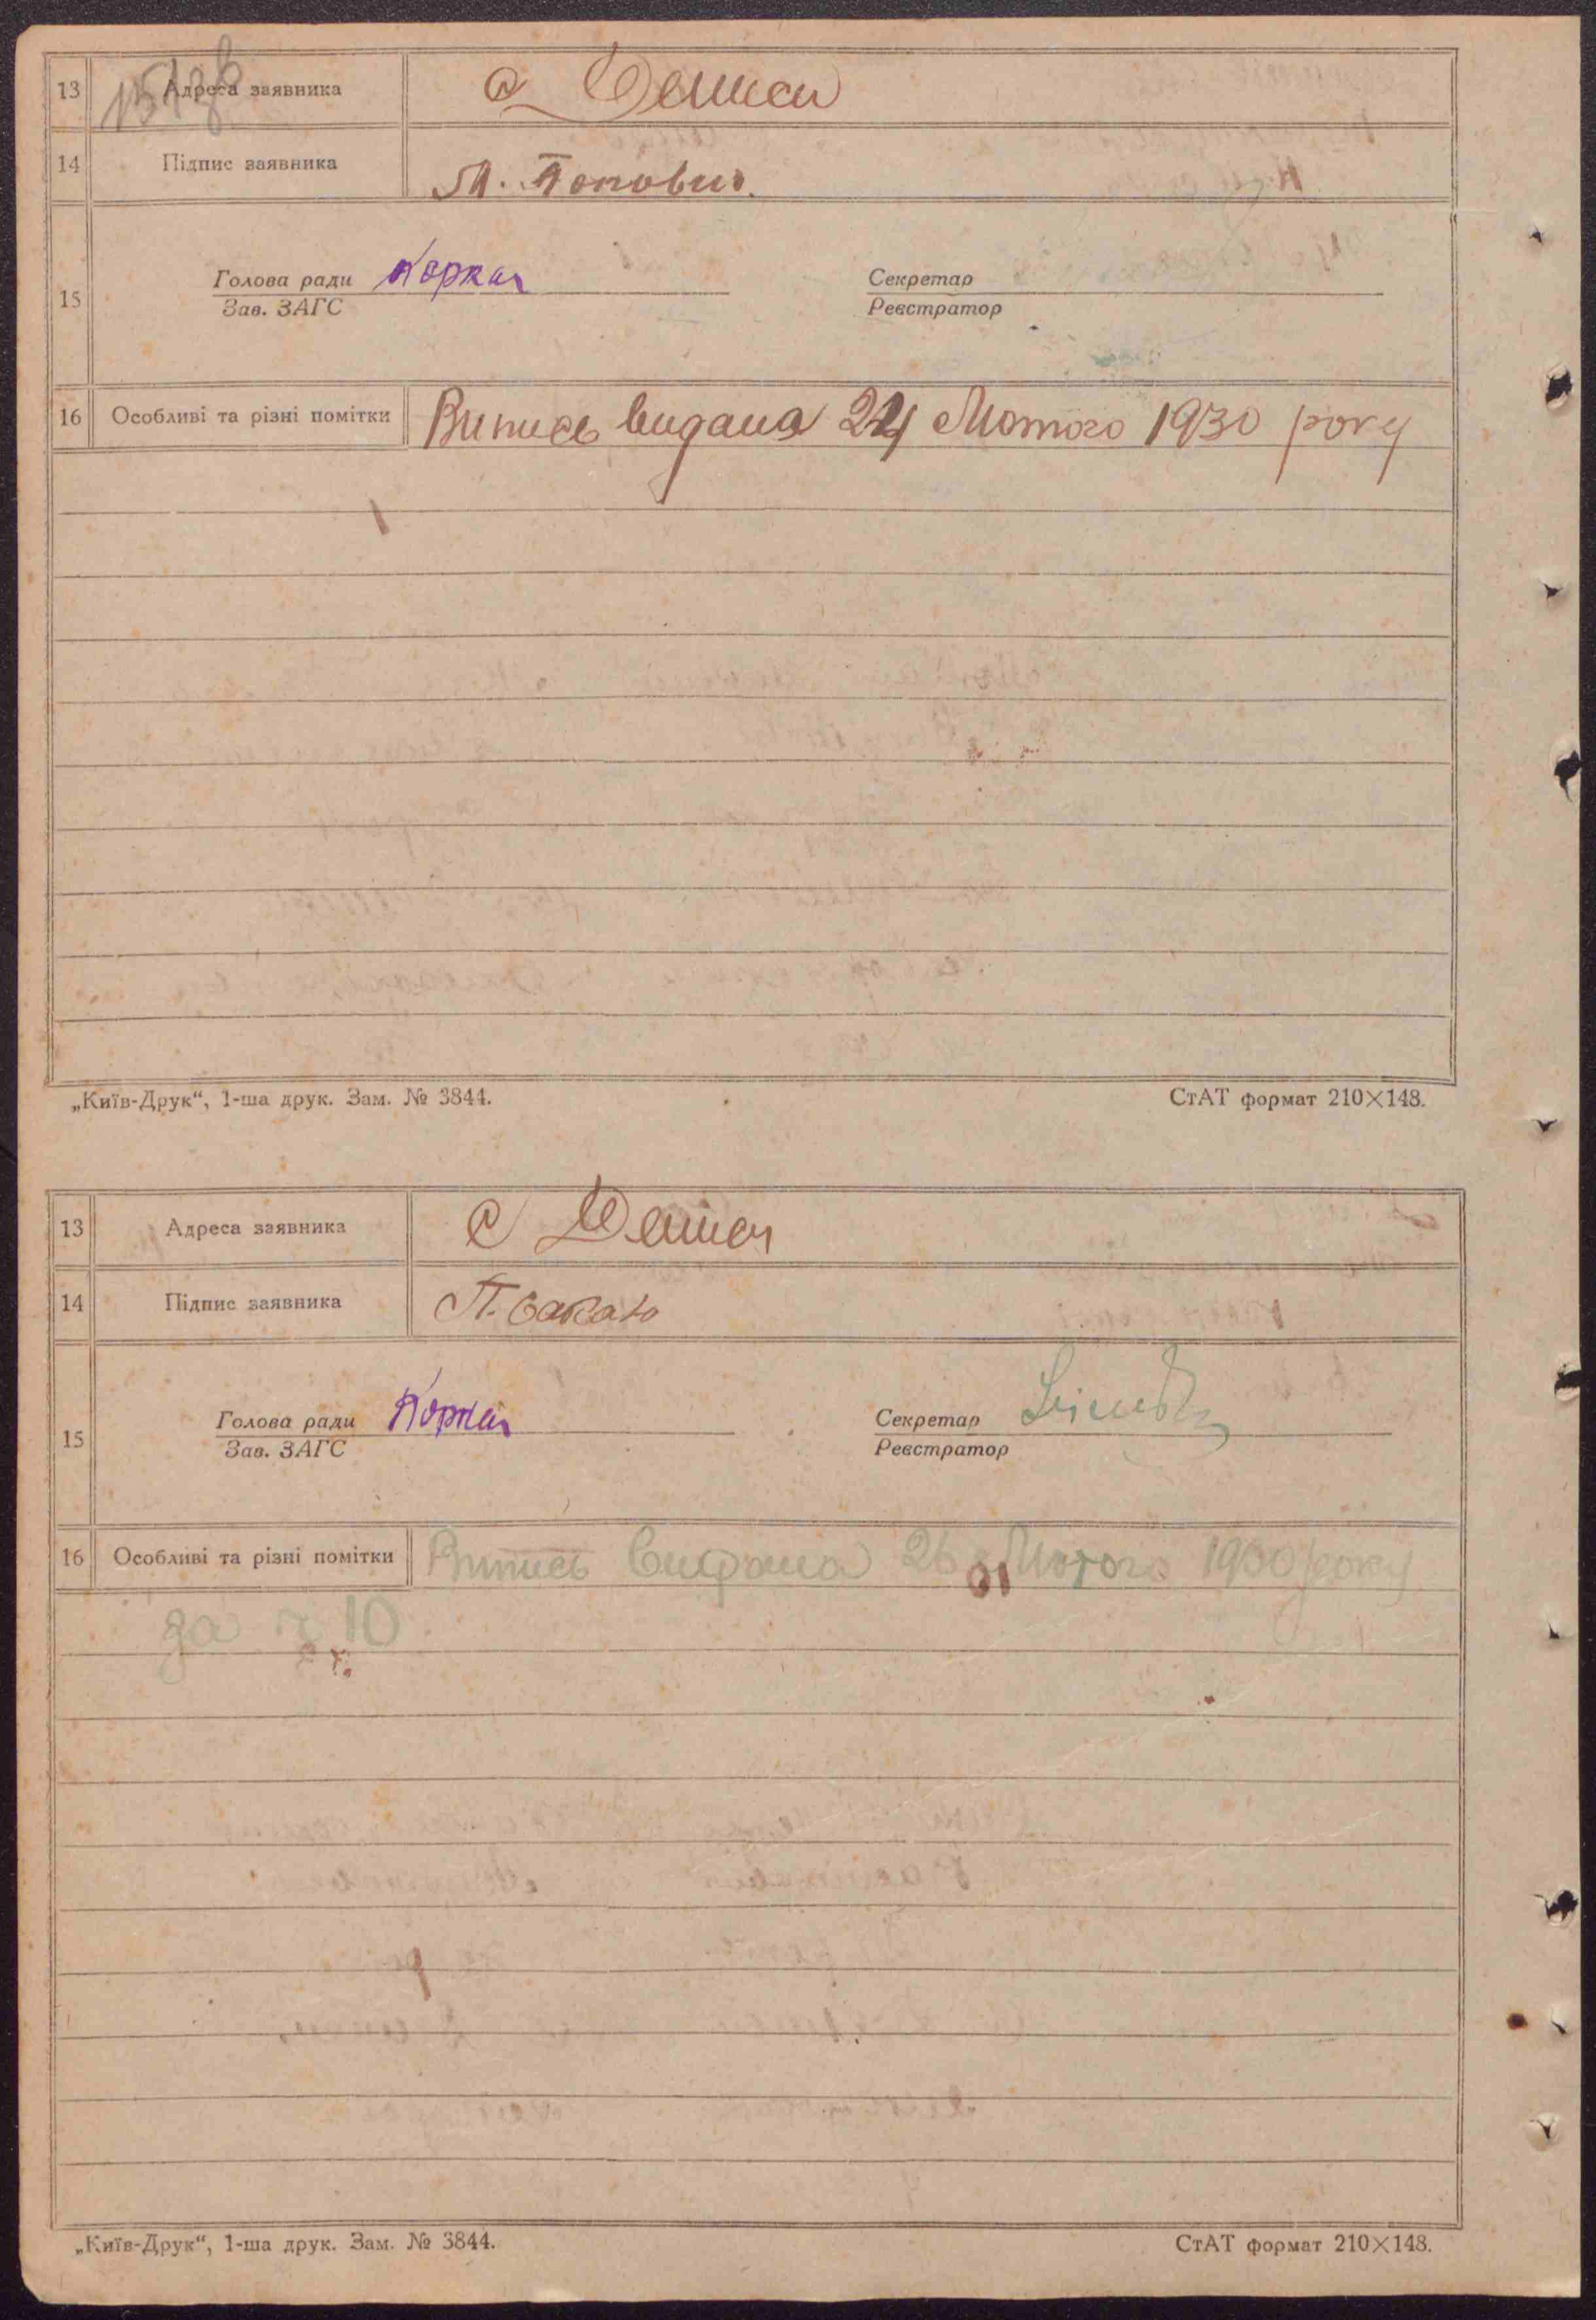 13 Адреса заявника с
14 Підпис заявника М. Попович.
Голова ради Коркач Секретар
15
Зав. ЗАГС Реєстратор
16 Особливі та різні помітки Випись видана 24 Лютого 1930 року
„Київ-Друк“, 1-ша друк. Зам. № 3844. СтАТ формат 210×148.
13 Адреса заявника с
14 Підпис заявника П.
Голова ради Коркач Секретар
15
Зав. ЗАГС Реєстратор
16 Особливі та різні помітки Випись видана 26 Лютого 1930 року
за ч 10
„Київ-Друк“, 1-ша друк. Зам. № 3844. СтАТ формат 210×148.